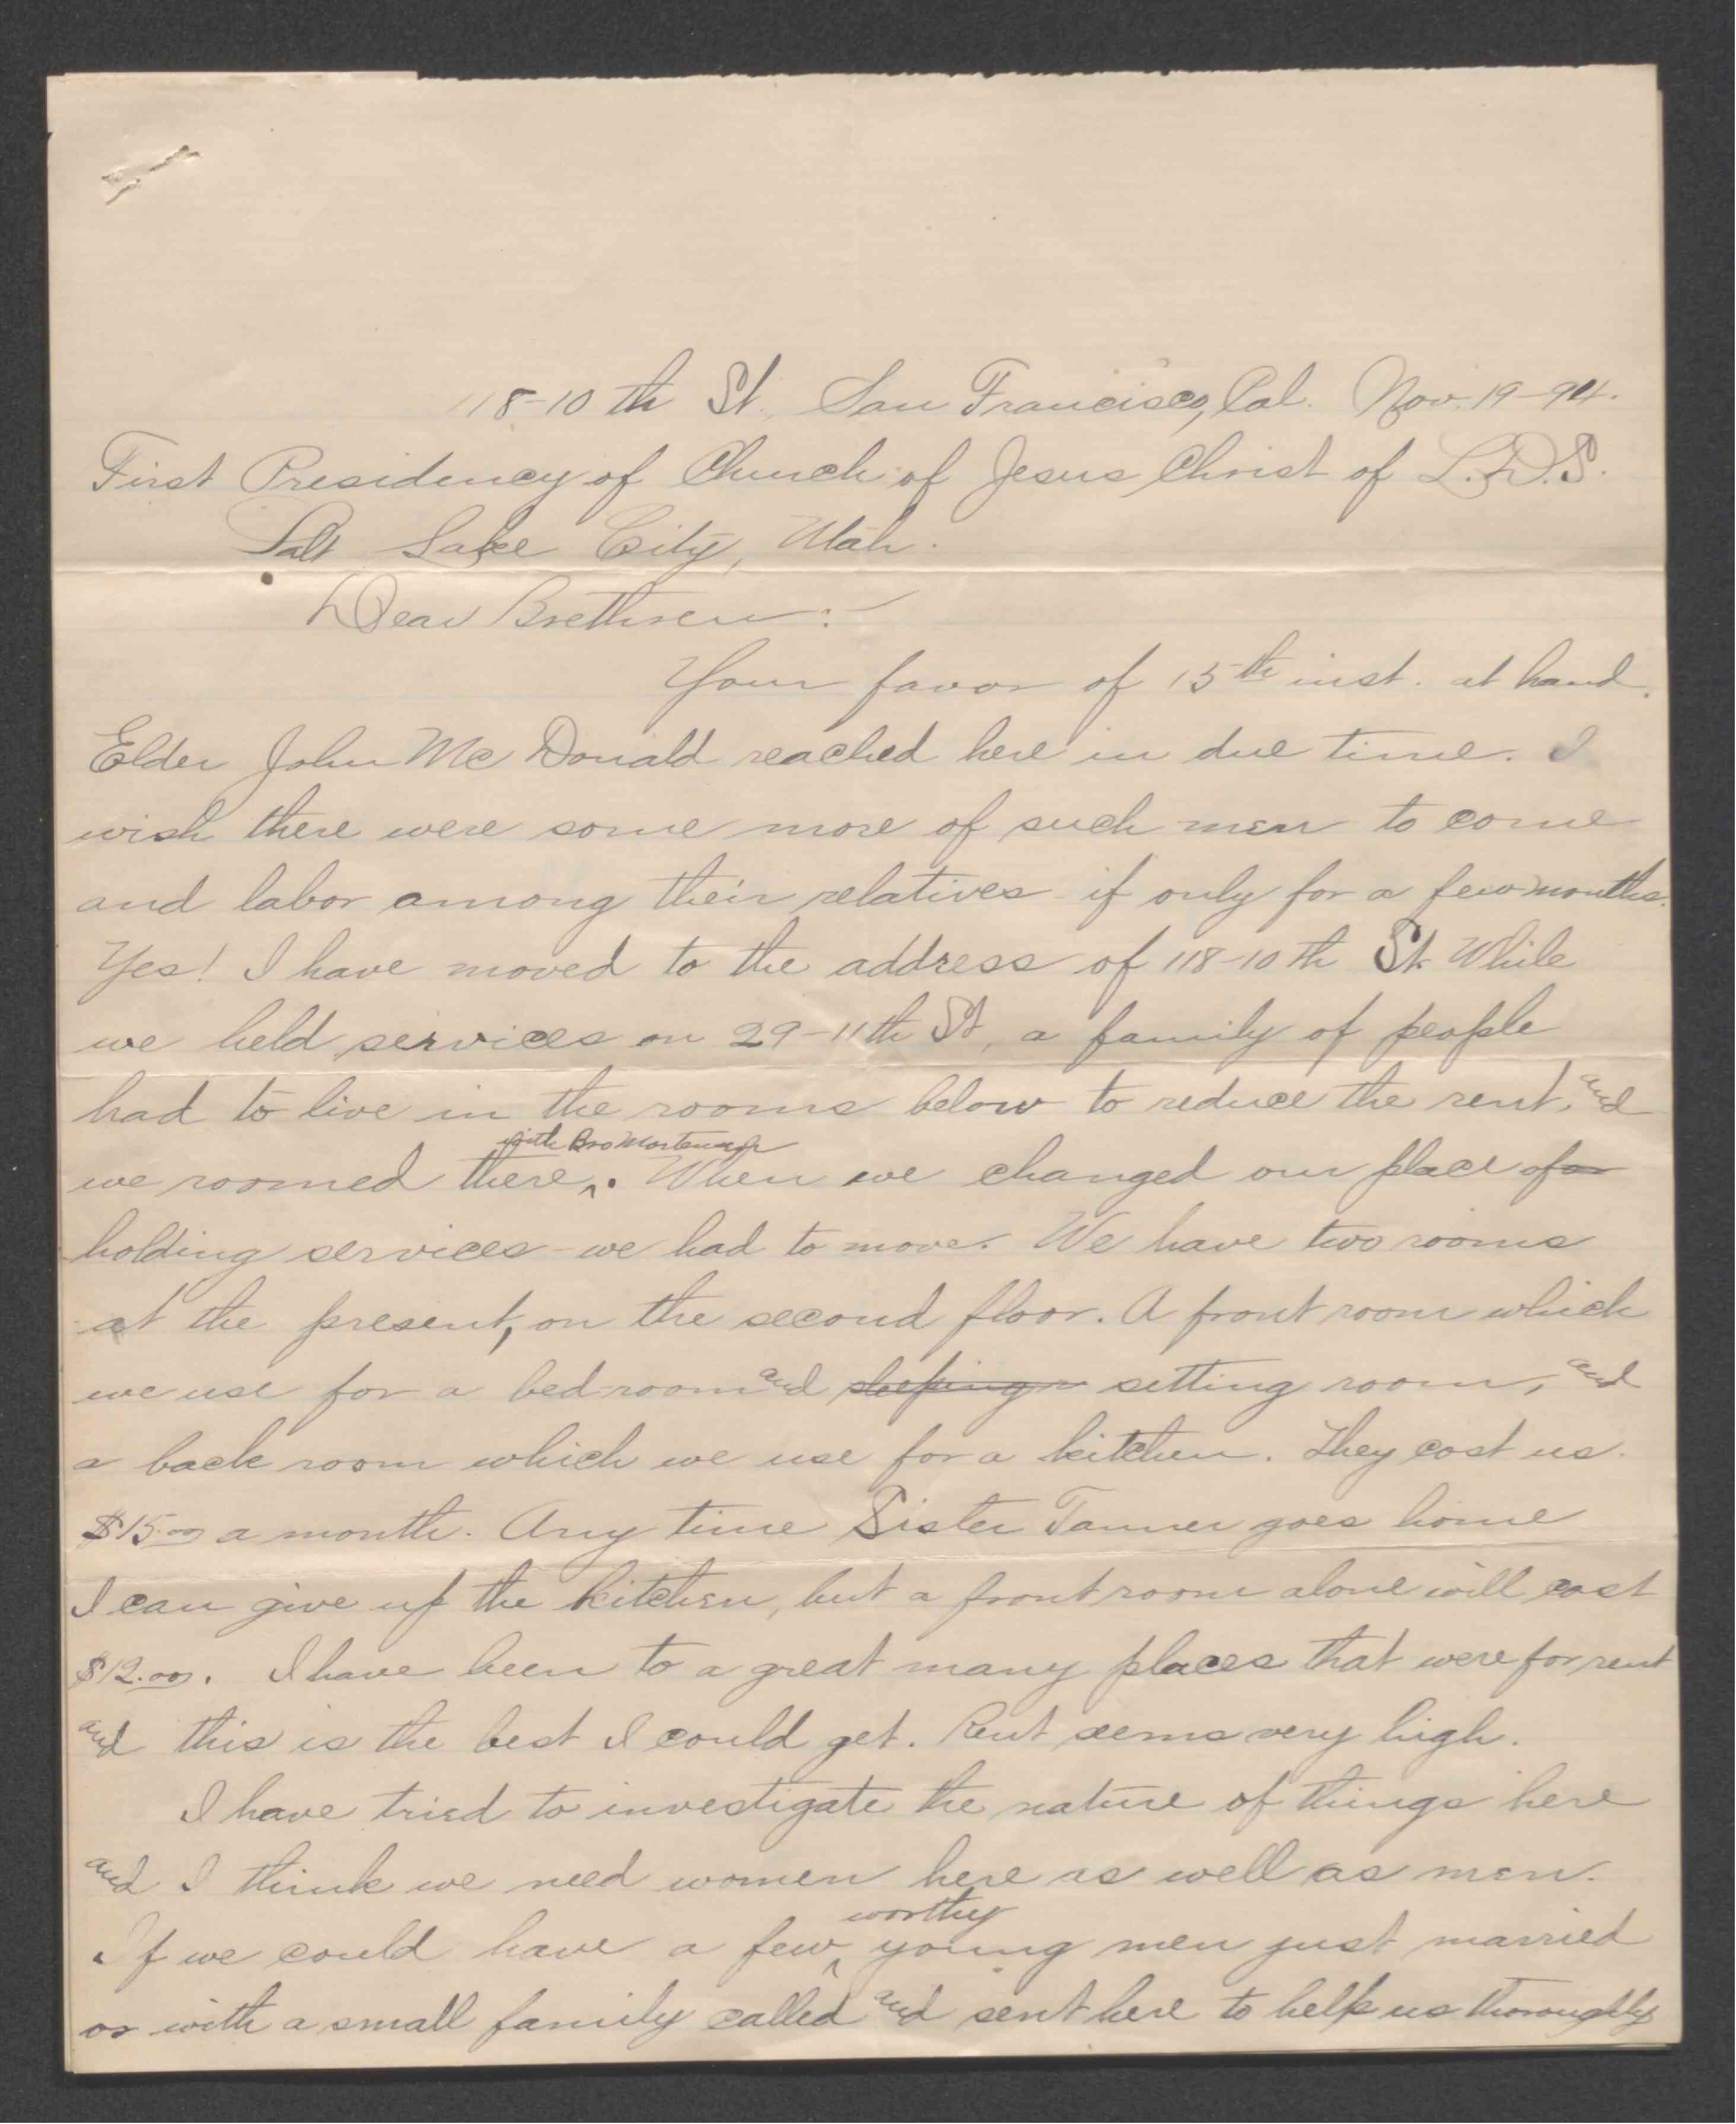 118-10th St., San Francisco, Cal. Nov. 19-94.
First Presidency of Church of Jesus Christ of L.D.S.
Salt Lake City, Utah.
Dear Brethren:-
Your favor of 15th inst. at hand.
Elder John Mc Donald reached here in due time. I
wish there were some more of such men to come
and labor among their relatives if only for a few months.
Yes! I have moved to the address of 118-10th St. While
we held services on 29-11th St, a family of people
had to live in the rooms below to reduce the rent, and
with Bro
we roomed there. When we changed our place of
holding services - we had to move. We have two rooms
at the present, on the second floor. A front room which
we use for a bed-room and sleeping setting room, and
a back room which we use for a kitchen. They cost us
$15.00 a month. Any time Sister Tanner goes home
I can give up the kitchen, but a front room alone will cost
$12.00. I have been to a great many places that were for rent
and this is the best I could get. Rent seems very high.
I have tried to investigate the nature of things here
and I think we need women here as well as men.
worthy
If we could have a few young men just married
or with a small family called and sent here to help us thoroughly